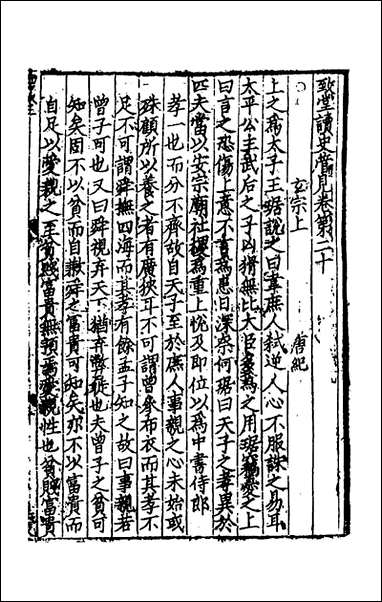 致堂讀史管見卷第二十
玄宗上 唐紀
上之為太子王琚說之曰韋庶人弒逆人心不服誅之易耳
太平公主武后之子凶猾無比大臣多為之用琚竊憂之上
曰言之恐傷上意不言為患日深奈何琚曰天子之孝異於
匹夫當以安宗廟社稷為重上悅及即位以為中書侍郎
孝一也而分不齊故自天子至於庶人事親之心未始或
殊顧所以養之者有廣狹耳不可謂曾參布衣而其孝不
足不可謂舜撫四海而其孝有餘孟子知之故曰事親若
曾子可也又曰舜視弃天下猶弃敝蓰也夫曾子之貧可
知矣固不以貧而自歉舜之富貴可知矣亦不以富貴而
自足以愛親之至貧賤富貴無預焉愛親性也貧賤富貴